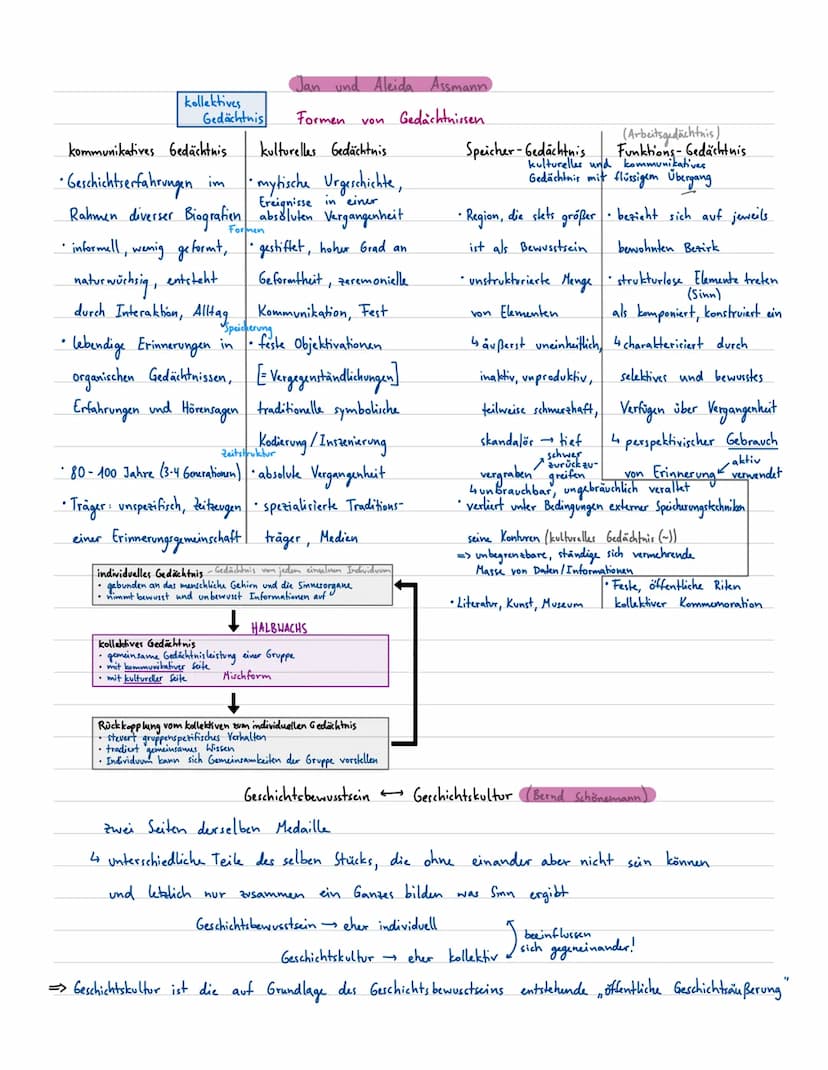 Jan und Aleida Assmann
kollektives
Gedächtnis
Formen von Gedächtnissen
kommunikatives Gedächtnis
· Geschichtserfahrungen im
Rahmen diverser Biografien
Formen
· informell, wenig geformt,
naturwüchsig, entsteht
durch Interaktion, Alltag
Speicherung
· lebendige Erinnerungen in
organischen Gedächtnissen,
Erfahrungen und Hörensagen
Zeitstruktur
· 80-100 Jahre (3-4 Generationen)
· Träger: unspezifisch, Zeitzeugen
einer Erinnerungsgemeinschaft
kulturelles Gedächtnis
· mytische Urgeschichte,
Ereignisse in einer
absoluten Vergangenheit
· gestiftet, hoher Grad an
Geformtheit, zeremonielle
Kommunikation, Fest
· feste Objektivationen
[= Vergegenständlichungen]
traditionelle symbolische
Kodierung/Inszenierung
· absolute Vergangenheit
· spezialisierte Traditions-
träger, Medien
Speicher-Gedächtnis
(Arbeitsgedächtnis)
Funktions-Gedächtnis
kulturelles und kommunikatives
Gedächtnis mit flüssigem Übergang
· Region, die stets größer
ist als Bewusstsein
· unstrukturierte Menge
von Elementen
↳ äußerst uneinheitlich,
inaktiv, unproduktiv,
teilweise schmerzhaft,
skandalös → tief
vergraben ↗ schwer
zurückzu-
greifen
↳ unbrauchbar, ungebräuchlich veraltet
· verliert unter Bedingungen externer Speicherungstechniken
seine Konturen (kulturelles Gedächtnis (~))
=> unbegrenzbare, ständige sich vermehrende
Masse von Daten/Informationen
· Literatur, Kunst, Museum
· bezieht sich auf jeweils
bewohnten Bezirk
· strukturlose Elemente treten
(Sinn)
als komponiert, konstruiert ein
↳ charakterisiert durch
selektives und bewusstes
Verfügen über Vergangenheit
↳ perspektivischer Gebrauch
von Erinnerung ↙ aktiv
verwendet
· Feste, öffentliche Riten
kollektiver Kommemoration
individuelles Gedächtnis - Gedächtnis von jedem einzelnen Individuum
· gebunden an das menschliche Gehirn und die Sinnesorgane
· nimmt bewusst und unbewusst Informationen auf
↓ HALBWACHS
kollektives Gedächtnis
· gemeinsame Gedächtnisleistung einer Gruppe
· mit kommunikativer Seite
· mit kultureller Seite Mischform
Rückkopplung vom kollektiven zum individuellen Gedächtnis
· steuert gruppenspezifisches Verhalten
· tradiert gemeinsames Wissen
· Individuum kann sich Gemeinsamkeiten der Gruppe vorstellen
Geschichtsbewusstsein ↔ Geschichtskultur (Bernd Schönemann)
zwei Seiten derselben Medaille
↳ unterschiedliche Teile des selben Stücks, die ohne einander aber nicht sein können
und letzlich nur zusammen ein Ganzes bilden was Sinn ergibt
Geschichtsbewusstsein → eher individuell
Geschichtskultur → eher kollektiv
beeinflussen
sich gegeneinander!
=> Geschichtskultur ist die auf Grundlage des Geschichtsbewusstseins entstehende „öffentliche Geschichtsäußerung"